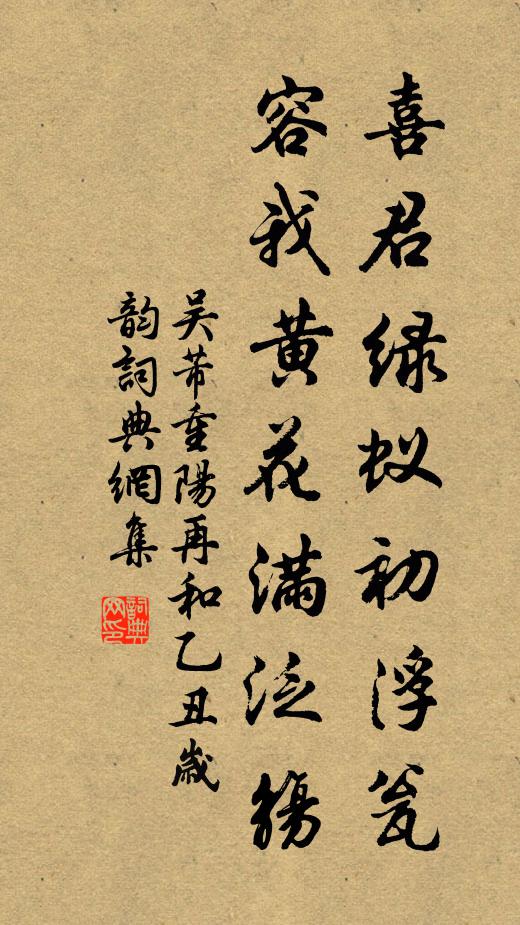 喜君绿蚁初浮瓮
容我黄花满泛觞
吴芾重陽再和乙丑歳
韵詞典網集
詞典
网印